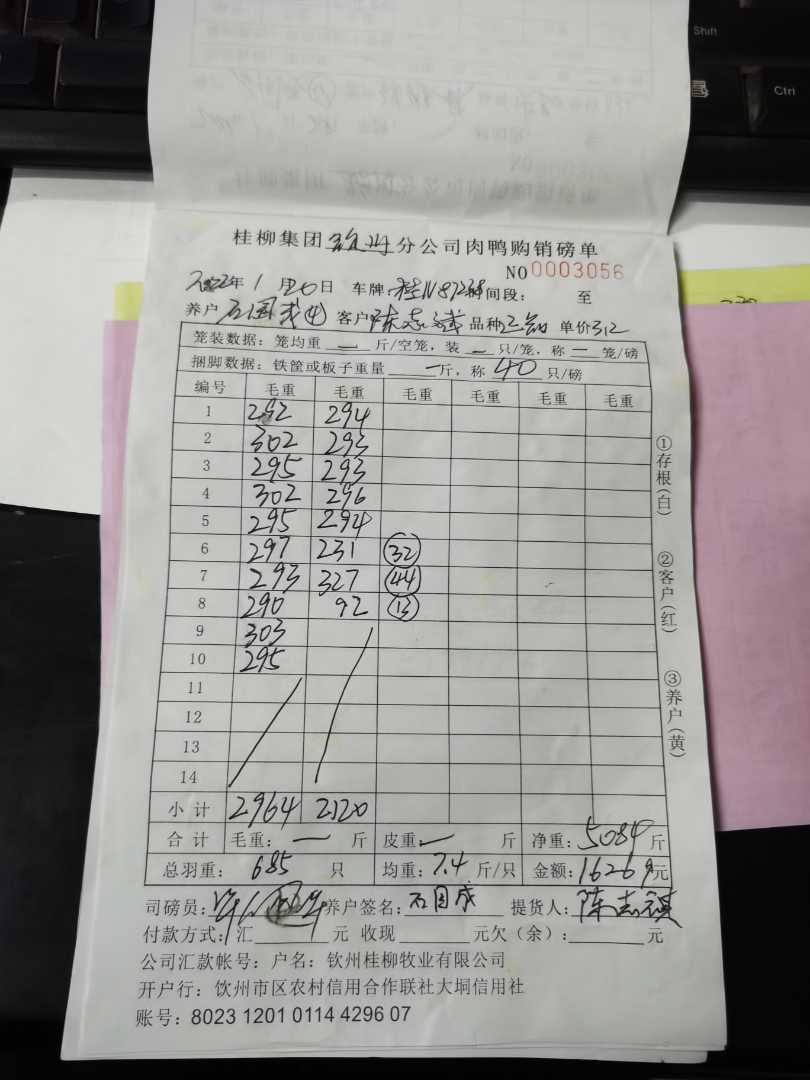 桂柳集团钦州分公司肉鸭购销磅单
NO 0003056
2022年1月20日 车牌:桂N 时间段: 至
养户 石国成 客户 陈志 品种 单价 3.12
笼装数据: 笼均重 — 斤/空笼, 装 — 只/笼, 称 — 笼/磅
捆脚数据: 铁筐或板子重量 — 斤, 称 40 只/磅
编号 毛重 毛重 毛重 毛重 毛重 毛重
1 292 294
2 302 293
3 295 293
4 302 296
5 295 294
6 297 231 32
7 293 327 44
8 290 92 13
9 303
10 295
11
12
13
14
小计 2964 2120
合计 毛重: — 斤 皮重: — 斤 净重: 5084 斤
总羽重: 685 只 均重: 7.4 斤/只 金额: 16269 元
司磅员: 养户签名: 石国成 提货人: 陈志
付款方式: 汇 元 收现 元欠(余): 元
公司汇款帐号: 户名: 钦州桂柳牧业有限公司
开户行: 钦州市区农村信用合作联社大垌信用社
账号: 8023 1201 0114 4296 07
①存根(白)
②客户(红)
③养户(黄)
Shift
Ctrl